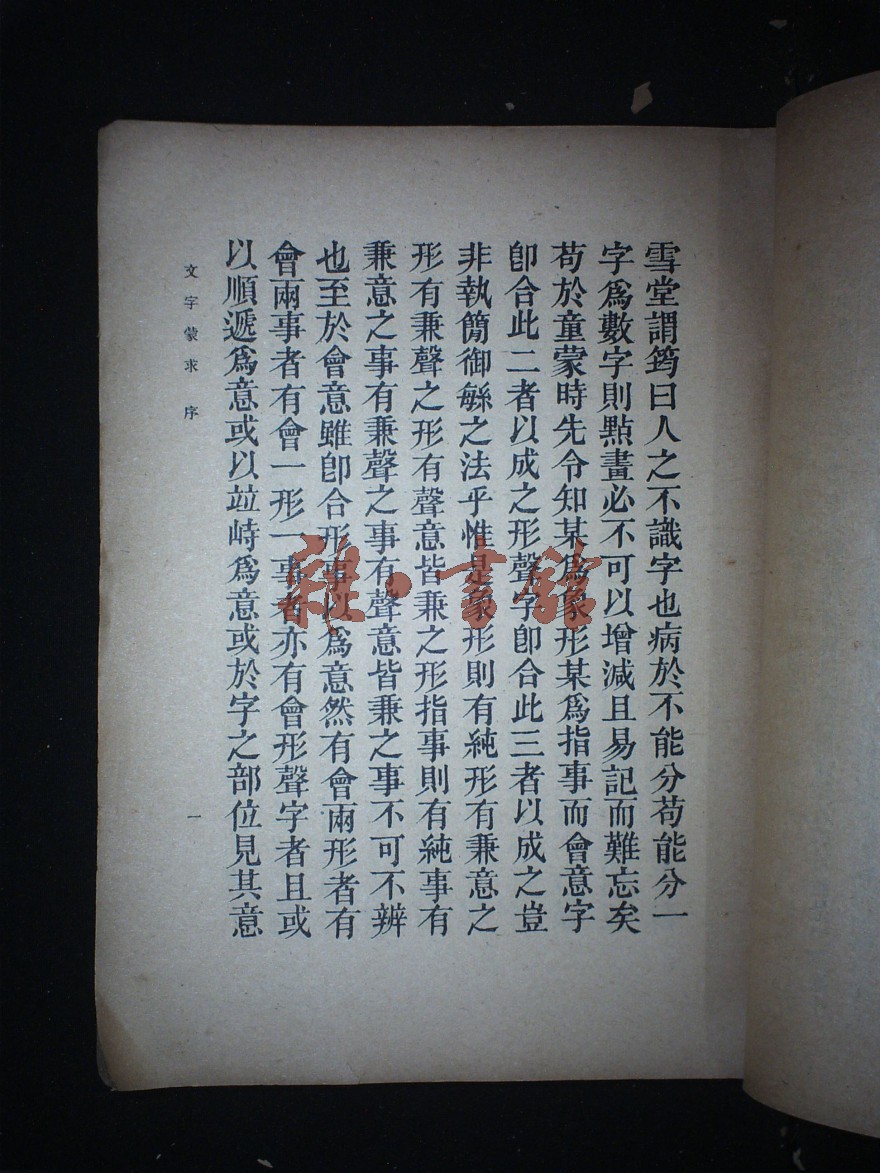 雪堂謂筠曰人之不識字也病於不能分苟能分一
字爲數字則點畫必不可以增減且易記而難忘矣
苟於童蒙時先令知某爲象形某爲指事而會意字
卽合此二者以成之形聲字卽合此三者以成之豈
非執簡御緐之法乎惟是象形則有純形有兼意之
形有兼聲之形有聲意皆兼之形指事則有純事有
兼意之事有兼聲之事有聲意皆兼之事不可不辨
也至於會意雖卽合形事以爲意然有會兩形者有
會兩事者有會一形一事者亦有會形聲字者且或
以順遞爲意或以竝峙爲意或於字之部位見其意
文字蒙求 序
一
雜·書館